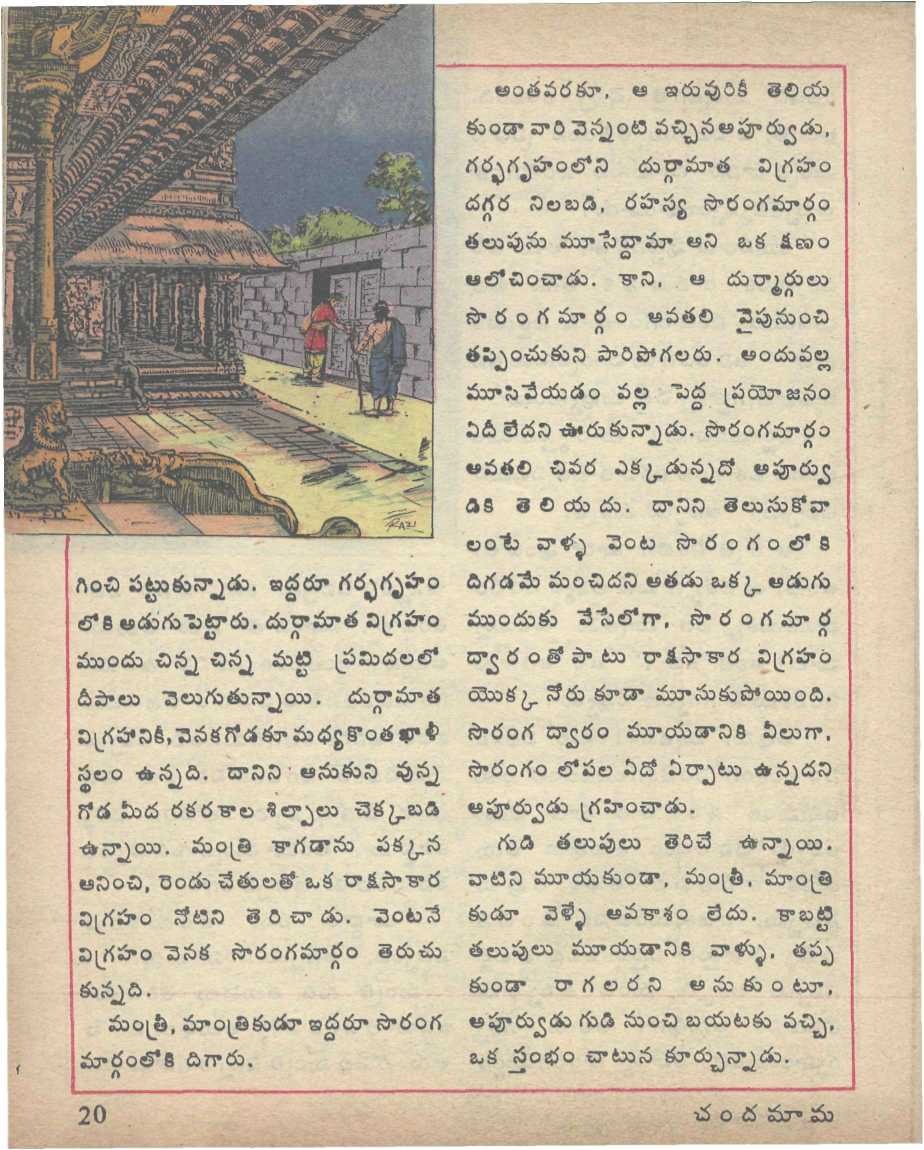 RAZI
గించి పట్టుకున్నాడు. ఇద్దరూ గర్భగృహం
లోకి అడుగుపెట్టారు. దుర్గామాత విగ్రహం
ముందు చిన్న చిన్న మట్టి ప్రమిదలలో
దీపాలు వెలుగుతున్నాయి. దుర్గామాత
విగ్రహానికీ, వెనకగోడకూ మధ్యకొంత ఖాళీ
స్థలం ఉన్నది. దానిని ఆనుకుని వున్న
గోడ మీద రకరకాల శిల్పాలు చెక్కబడి
ఉన్నాయి. మంత్రి కాగడాను పక్కన
ఆనించి, రెండు చేతులతో ఒక రాక్షసాకార
విగ్రహం నోటిని తెరిచాడు. వెంటనే
విగ్రహం వెనక సొరంగమార్గం తెరుచు
కున్నది.
మంత్రీ, మాంత్రికుడూ ఇద్దరూ సొరంగ
మార్గంలోకి దిగారు.
అంతవరకూ, ఆ ఇరువురికీ తెలియ
కుండా వారి వెన్నంటి వచ్చిన అపూర్వుడు,
గర్భగృహంలోని దుర్గామాత విగ్రహం
దగ్గర నిలబడి, రహస్య సొరంగమార్గం
తలుపును మూసేద్దామా అని ఒక క్షణం
ఆలోచించాడు. కాని, ఆ దుర్మార్గులు
సొరంగమార్గం అవతలి వైపునుంచి
తప్పించుకుని పారిపోగలరు. అందువల్ల
మూసివేయడం వల్ల పెద్ద ప్రయోజనం
ఏదీ లేదని ఊరుకున్నాడు. సొరంగమార్గం
అవతలి చివర ఎక్కడున్నదో అపూర్వు
డికి తెలియదు. దానిని తెలుసుకోవా
లంటే వాళ్ళ వెంట సొరంగంలోకి
దిగడమే మంచిదని అతడు ఒక్క అడుగు
ముందుకు వేసేలోగా, సొరంగమార్గ
ద్వారంతోపాటు రాక్షసాకార విగ్రహం
యొక్క నోరు కూడా మూసుకుపోయింది.
సొరంగ ద్వారం మూయడానికి వీలుగా,
సొరంగం లోపల ఏదో ఏర్పాటు ఉన్నదని
అపూర్వుడు గ్రహించాడు.
గుడి తలుపులు తెరిచే ఉన్నాయి.
వాటిని మూయకుండా, మంత్రీ, మాంత్రి
కుడూ వెళ్ళే అవకాశం లేదు. కాబట్టి
తలుపులు మూయడానికి వాళ్ళు, తప్ప
కుండా రాగలరని అనుకుంటూ,
అపూర్వుడు గుడి నుంచి బయటకు వచ్చి,
ఒక స్తంభం చాటున కూర్చున్నాడు.
20
చందమామ